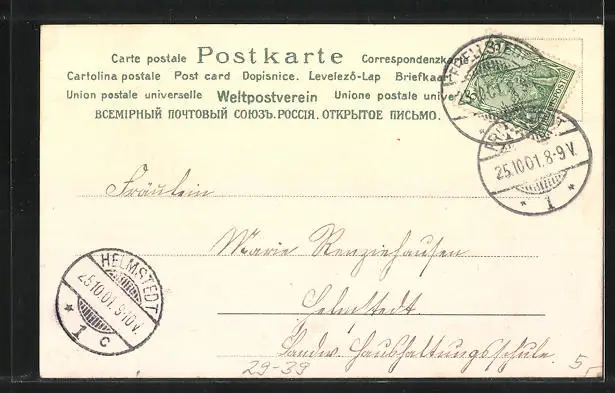 Carte postale Postkarte Correspondenzkarte
Cartolina postale Post card Dopisnice. Levelező-Lap Briefkaart
Union postale universelle Weltpostverein Unione postale unive
ВСЕМІРНЫЙ ПОЧТОВЫЙ СОЮЗЪ. РОССІЯ. ОТКРЫТОЕ ПИСЬМО.
25.10.01.8-9V.
* 1 *
Fräulein
Marie Renziehausen
HELMSTEDT
25.10.01.9-10V.
* 1 c
Helmstedt.
Landw. Haushaltungsschule.
29-39
5,-